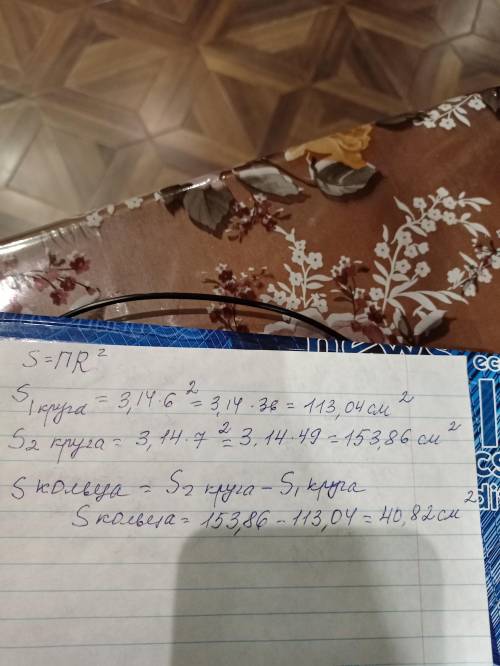 S = ПR²
S₁ круга = 3,14 · 6² = 3,14 · 36 = 113,04 см²
S₂ круга = 3,14 · 7² = 3,14 · 49 = 153,86 см²
S кольца = S₂ круга – S₁ круга
S кольца = 153,86 – 113,04 = 40,82 см²